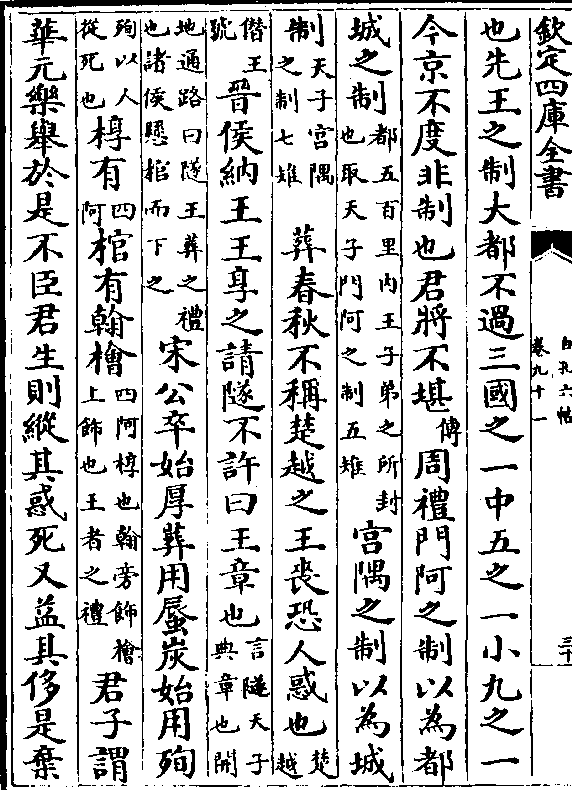 欽定四庫全書
白孔六帖
卷九十一
三十
也先王之制大都不過三國之一中五之一小九之一
今京不度非制也君將不堪傳 周禮門阿之制以為都
城之制都五百里内王子弟之所封也取天子門阿之制五雉 宫隅之制以為城
制天子宫隅之制七雉 葬春秋不稱楚越之王喪恐人惑也楚越
僭王號 晉侯納王王享之請隧不許曰王章也言隧天子典章也開
地通路曰隧王葬之禮也諸侯懸棺而下之 宋公卒始厚葬用蜃炭始用殉
殉以人從死也 椁有四阿棺有翰檜四阿椁也翰旁飾檜上飾也王者之禮 君子謂
華元樂舉於是不臣君生則縱其惑死又益其侈是棄